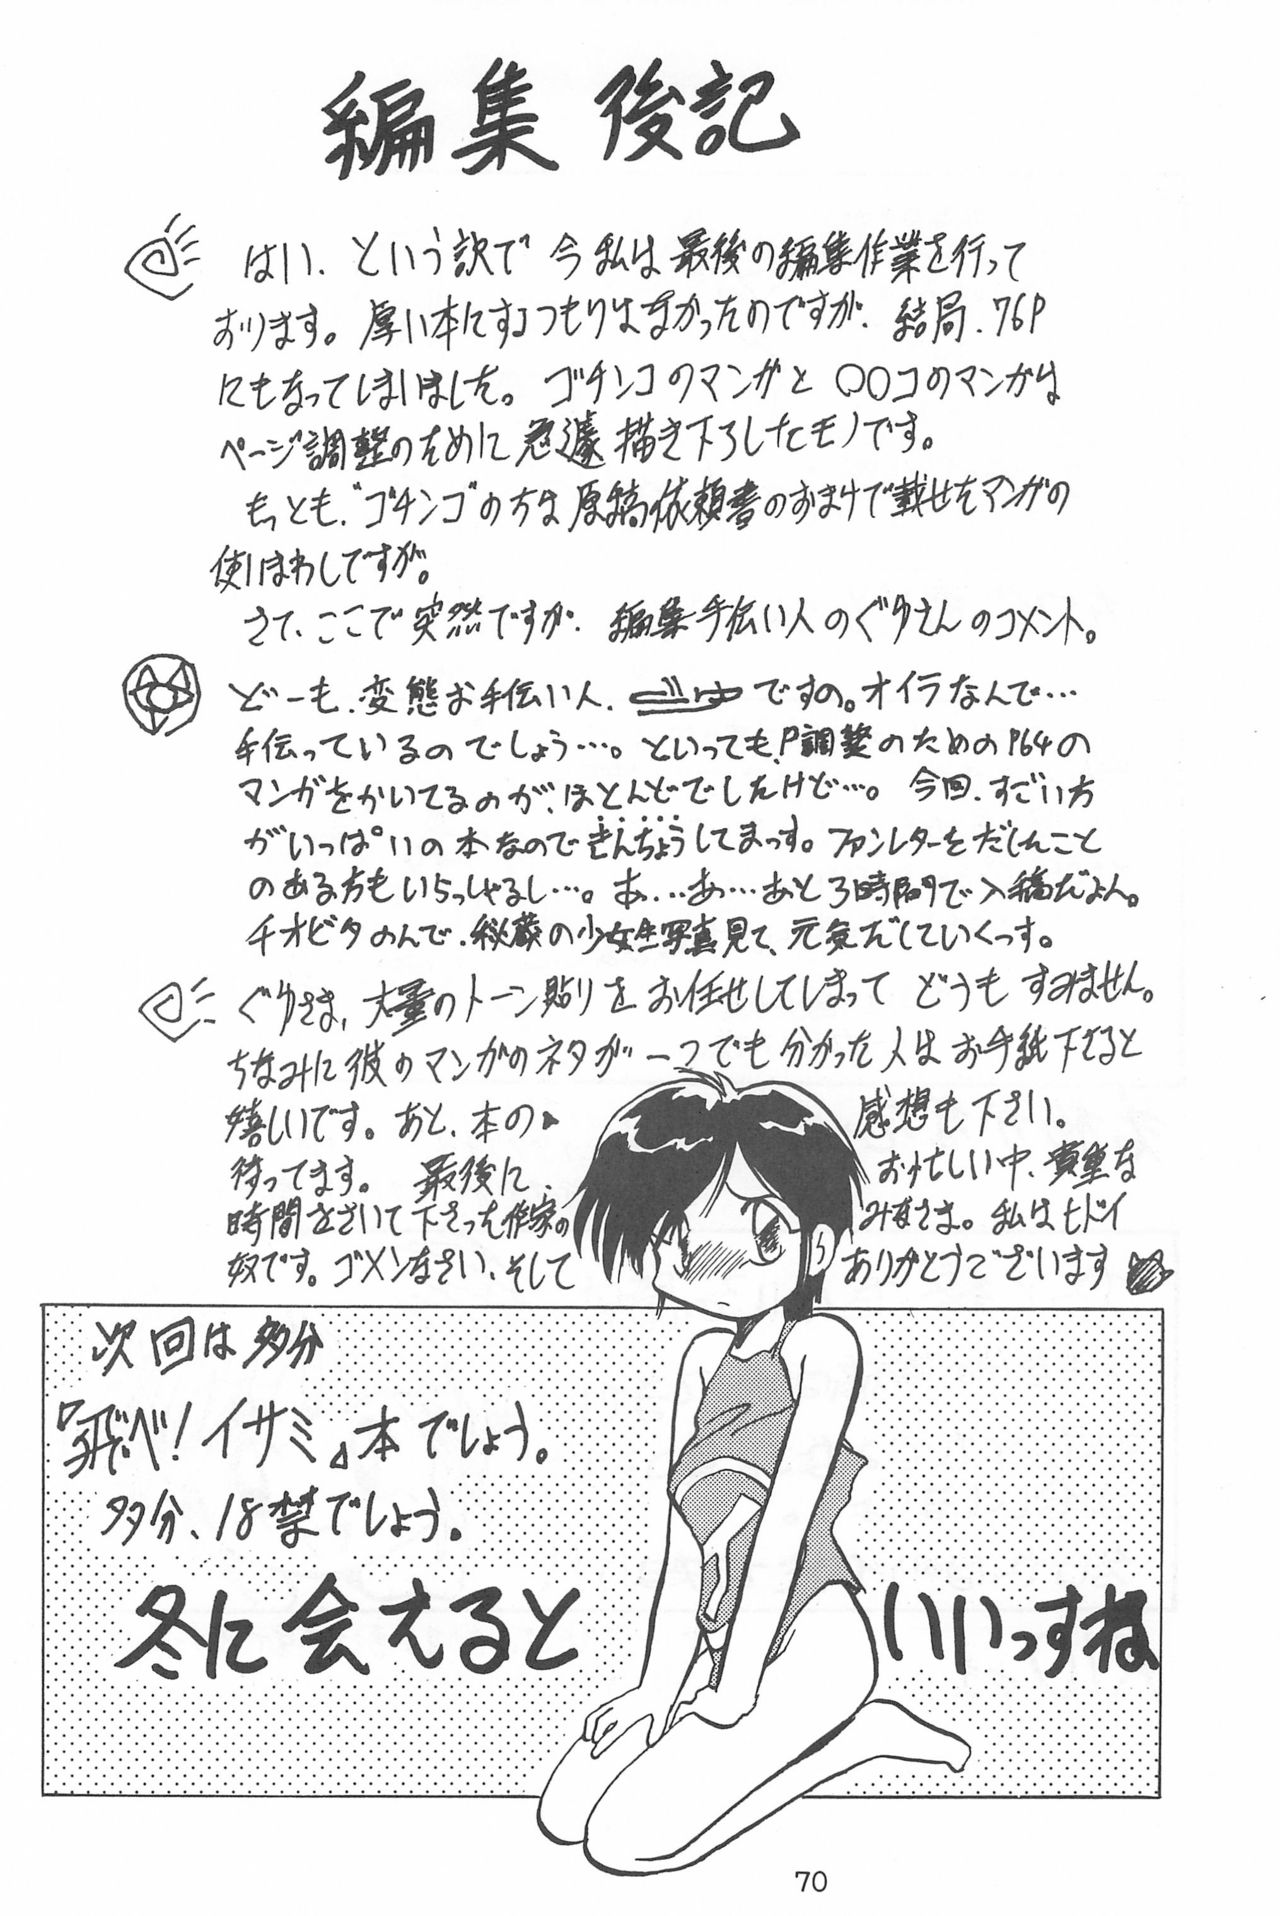 編集後記
はい、という訳で今私は最後の編集作業を行って
おります。厚い本にするつもりはなかったのですが、結局、76P
にもなってしまいました。ゴチンコのマンガと〇〇コのマンガは
ページ調整のために急遽描き下ろしたモノです。
もっとも、“ゴチンゴ”の方は原稿依頼書のおまけで載せたマンガの
使いまわしですが。
さて、ここで突然ですが、編集手伝い人のぐりさんのコメント。
どーも、変態お手伝い人、ですの。オイラなんで…
手伝っているのでしょう…。といっても、P調整のためのP64の
マンガをかいてるのが、ほとんどでしたけど…。今回、すごい方
がいっぱいの本なのできんちょうしてまっす。ファンレターをだしたこと
のある方もいらっしゃるし…。あ…あ…あと3時間で入稿だよん。
チオビタのんで、秘蔵の少女生写真見て、元気だしていくっす。
ぐりさま、大量のトーン貼りをお任せしてしまってどうもすみません。
ちなみに彼のマンガのネタが一つでも分かった人はお手紙下さると
嬉しいです。あと、本の感想も下さい。
待ってます。最後に、お忙しい中、貴重な
時間をさいて下さった作家のみなさま。私はヒドイ
奴です。ゴメンなさい、そしてありがとうございます
次回は多分
『飛べ！イサミ』本でしょう。
多分、18禁でしょう。
冬に会えるといいっすね
70